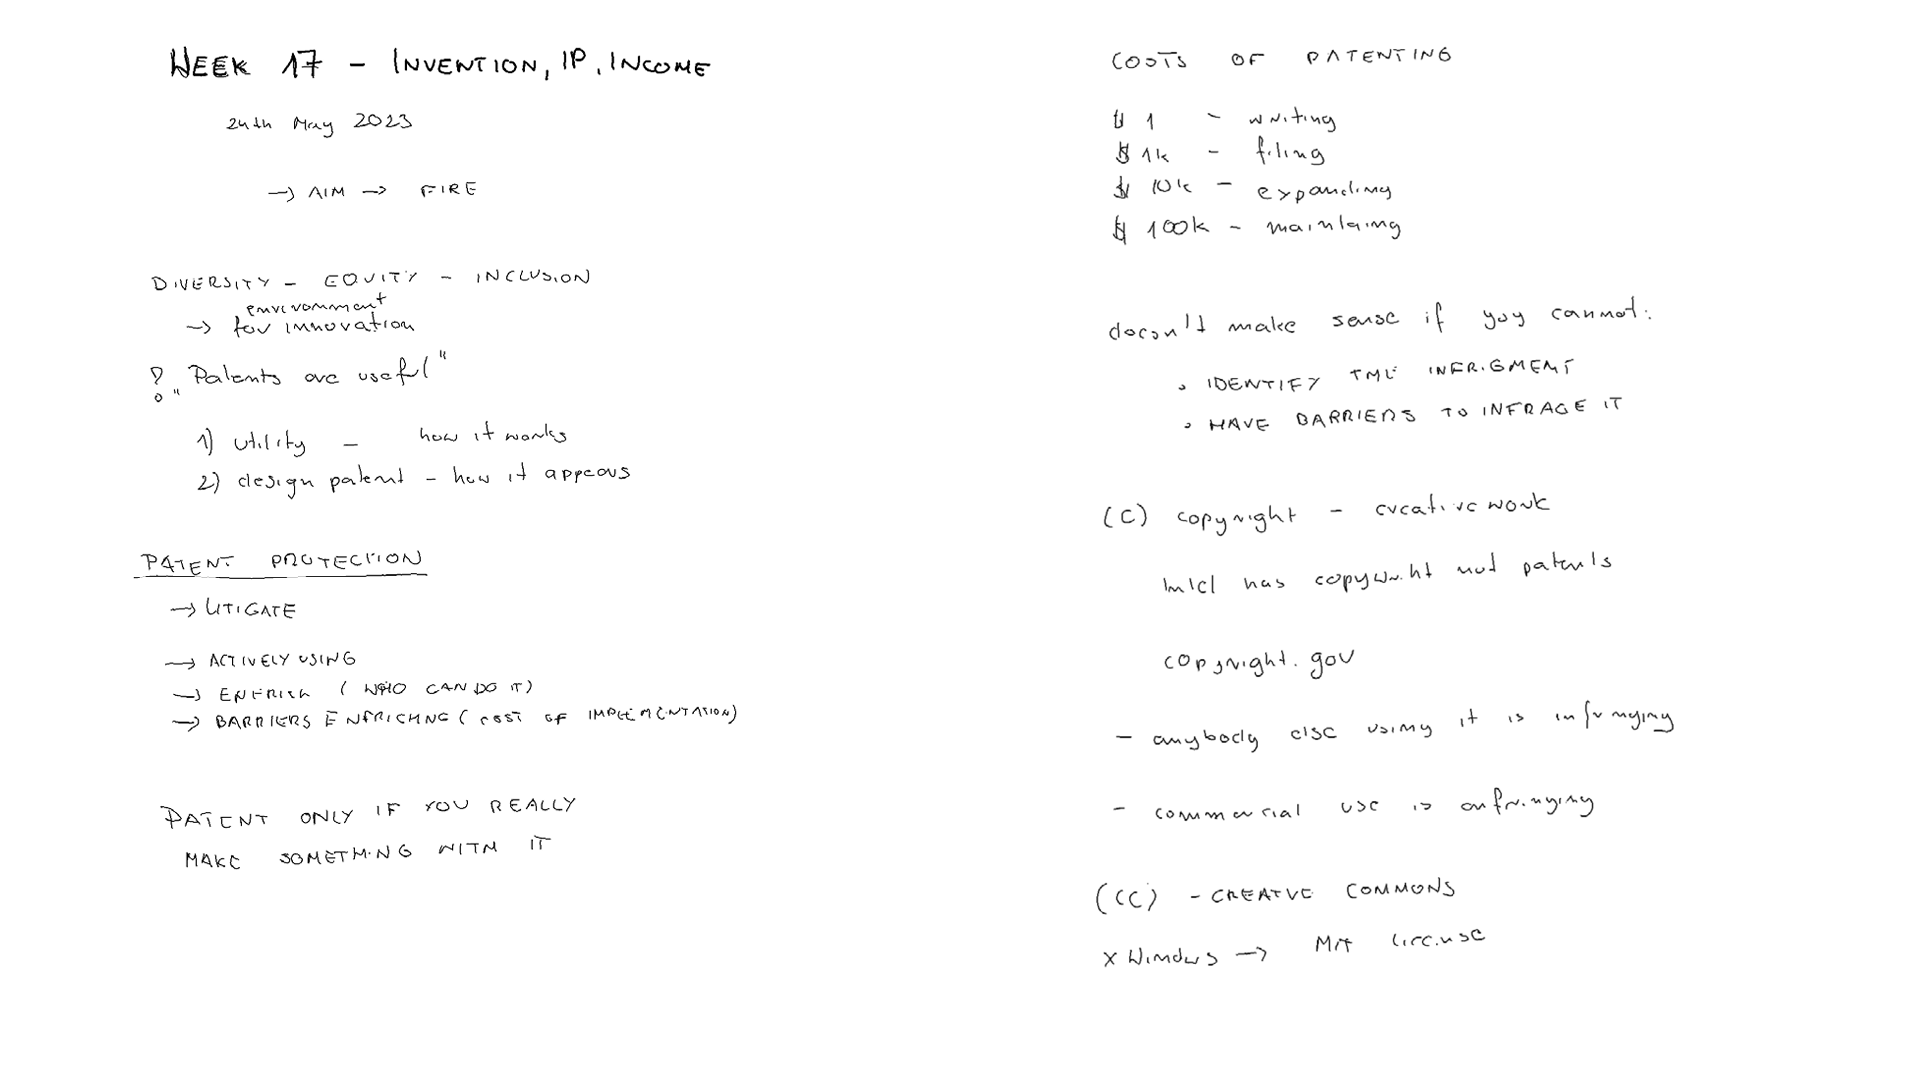 WEEK 17 - INVENTION, IP, INCOME
24th May 2023
→ AIM → FIRE
DIVERSITY - EQUITY - INCLUSION
environment
→ for innovation
? „Patents are useful"
1) utility - how it works
2) design patent - how it appears
PATENT PROTECTION
→ LITIGATE
→ ACTIVELY USING
→ (WHO CAN DO IT)
→ BARRIERS (COST OF IMPLEMENTATION)
PATENT ONLY IF YOU REALLY
MAKE SOMETHING WITH IT
COSTS OF PATENTING
$ 1 - writing
$ 1k - filing
$ 10k - expanding
$ 100k - maintaing
doesn't make sense if you cannot:
• IDENTIFY THE INFRIGMENT
• HAVE BARRIERS TO INFRAGE IT
(C) copyright - creative work
Intel has copywright not patents
copyright.gov
- anybody else using it is infringying
- commercial use is infringying
(CC) - CREATVE COMMONS
X Windows → MIT license